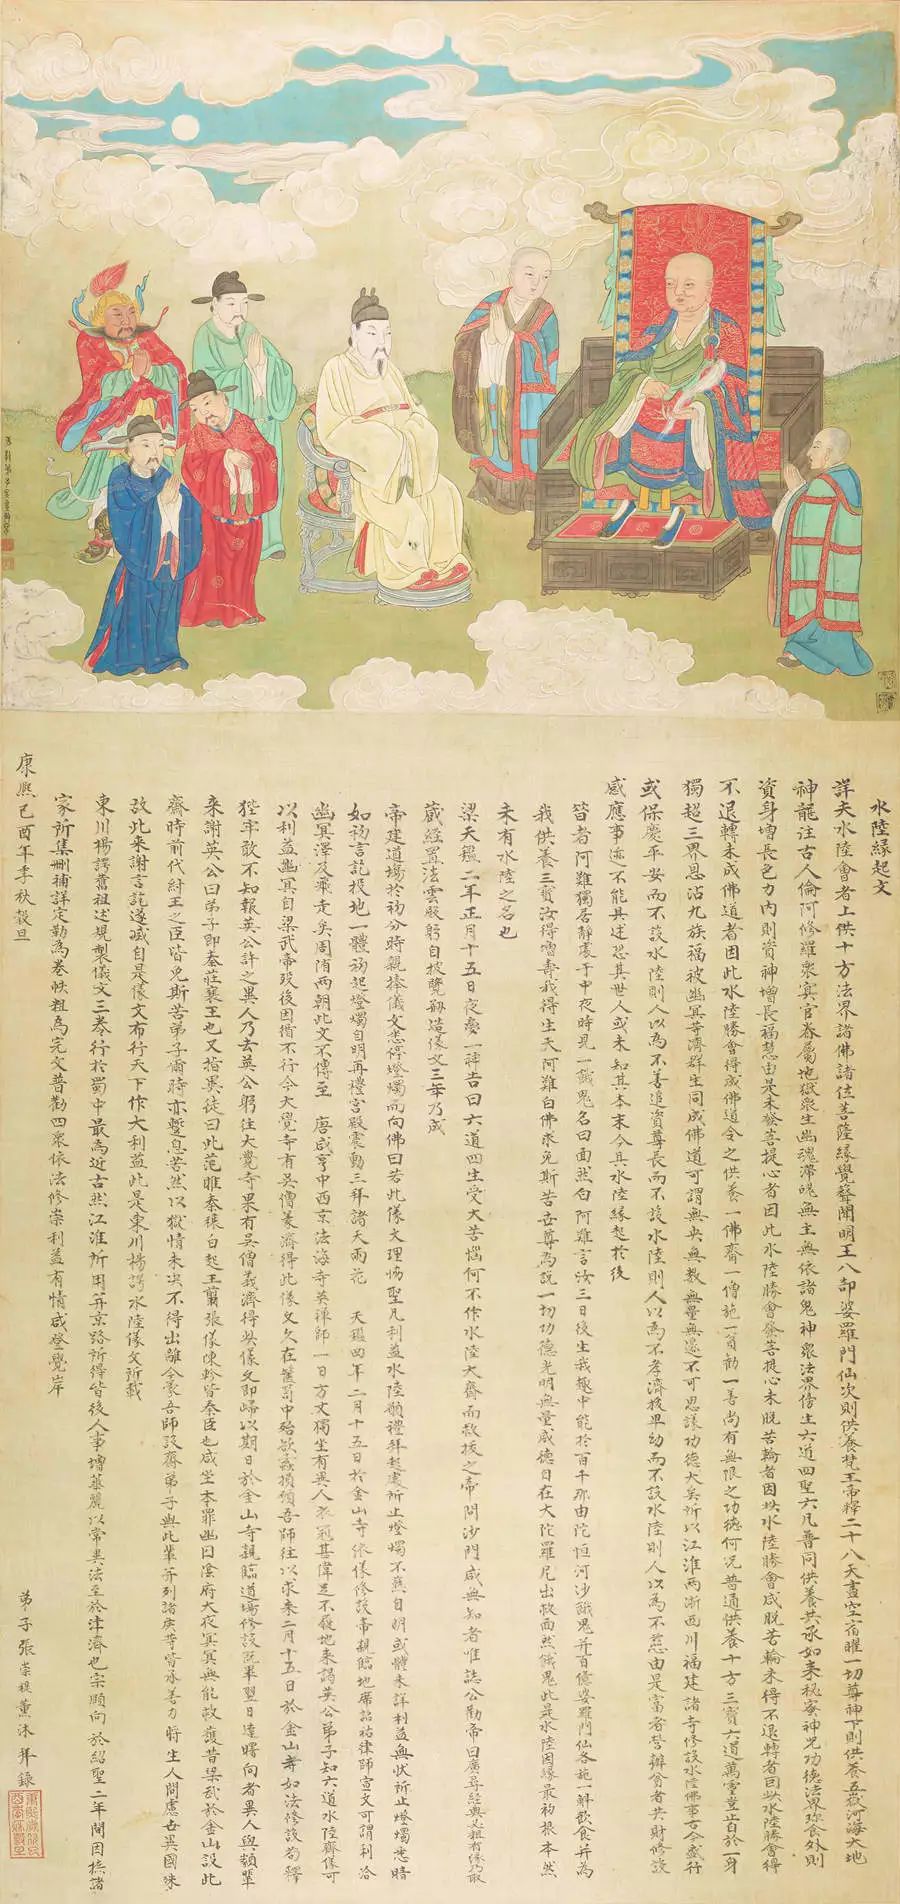 水陸緣起文
詳夫水陸會者上供十方法界諸佛諸位菩薩緣覺聲聞明王八部婆羅門仙次則供養梵王帝釋二十八天盡空宿曜一切尊神下則供養五嶽河海大地
神龍往古人倫阿修羅衆冥官眷屬地獄衆生幽魂滯魄無主無依諸鬼神衆法界傍生六道四聖六凡普同供養其承如來秘密神咒功德法界珍食外則
資身增長色力內則資神增長福慧由是未發菩提心者因此水陸勝會發菩提心未脫苦輪者因此水陸勝會咸脫苦輪未得不退轉者因此水陸勝會得
不退轉未成佛道者因此水陸勝會得成佛道今之供養一佛齋一僧施一貧勸一善尚有無限之功德何況普通供養十方三寶六道萬靈豈止於一身
獨超三界恩沾九族福被幽冥等濟群生同成佛道可謂無央無數無量無邊不可思議功德大矣所以江淮兩浙西川福建諸寺修設水陸佛事古今盛行
或保慶平安而不設水陸則人以為不善追資尊長而不設水陸則人以為不孝濟拔卑幼而不設水陸則人以為不慈由是富者營辦貧者共財修設
感應事迹不能具述恐其世人或未知其本末今具水陸緣起於後
昔者阿難獨居靜處于中夜時見一餓鬼名曰面然白阿難言汝三日後生我趣中能於百千那由陀恒河沙餓鬼并百億婆羅門仙各施一斛飲食并為
我供養三寶汝得增壽我得生天阿難白佛求免斯苦世尊為說一切功德光明無量威德自在大陀羅尼出救面然餓鬼此是水陸因緣最初根本然
未有水陸之名也
梁天鑑二年正月十五日夜夢一神告曰六道四生受大苦惱何不作水陸大齋而救拔之帝問沙門咸無知者唯誌公勸帝曰廣尋經典必粗有緣乃取
藏經置法雲殿躬自披覽捌造儀文三年乃成
帝建道場於初分時親捧儀文悉停燈燭而向佛曰若此儀文理協聖凡利益水陸願禮拜起處所止燈燭不爇自明或體未詳利益無狀所止燈燭悉暗
如初言訖投地一體初起燈燭自明再禮宮殿震動三拜諸天雨花 天鑑四年二月十五日於金山寺依儀修設帝親臨地席詔祐律師宣文可謂利洽
幽冥澤及飛走矣周隋兩朝此文不傳至 唐咸亨中西京法海寺英禪師一日方丈獨坐有異人衣冠甚偉足不履地來謁英公弟子知六道水陸齋儀可
以利益幽冥自梁武帝歿後因循不行今大覺寺有吳僧義濟得此儀文久在篋笥中殆欲蠹損願吾師往以求來二月十五日於金山寺如法修設苟釋
狴牢敢不知報英公許之異人乃去英公躬往大覺寺果有吳僧義濟得此儀文即歸以期日於金山寺親臨道場修設既畢翌日遠曙向者異人與類輩
來謝英公曰弟子即秦莊襄王也又指異徒曰此范睢秦穰白起王翦張儀陳軫皆秦臣也咸坐本罪幽囚陰府大夜冥冥無能救護昔梁武於金山設此
齋時前代紂王之臣皆免斯苦弟子爾時亦蹔息苦然以獄情未決不得出離今蒙吾師設齋弟子與此輩并列諸侯等皆承善力將生人間慮世異國殊
故此來謝言訖遂滅自是儀文布行天下作大利益此是東川楊諤水陸儀文所載
東川楊諤舊祖述規製儀文三卷行於蜀中最為近古然江淮所用并京路所得皆後人事增華麗以常異法至於津濟也宗願向 於紹聖二年間因摭諸
家所集刪補詳定勒為卷帙粗為完文普勸四衆依法修崇利益有情咸登覺岸
康熙己酉年季秋穀旦
弟子張崇祺薰沐拜錄